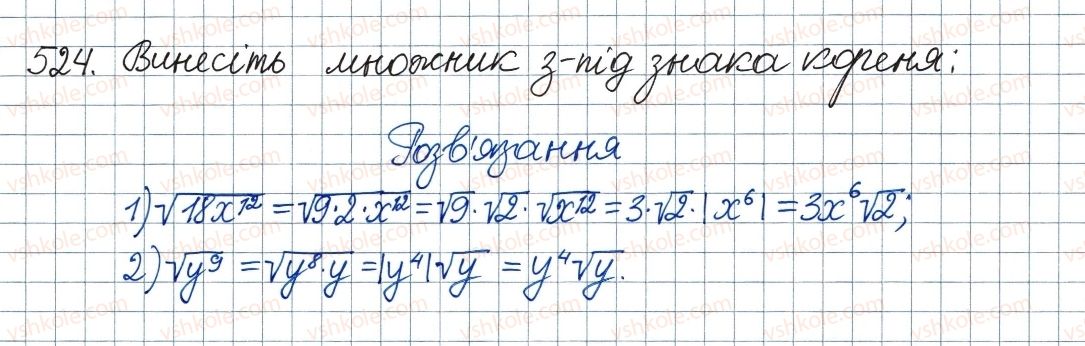 524. Винесіть множник з-під знака кореня:
Розв'язання
1) √18x¹² = √9·2·x¹² = √9·√2·√x¹² = 3·√2·|x⁶| = 3x⁶√2;
2) √y⁹ = √y⁸·y = |y⁴|√y = y⁴√y.